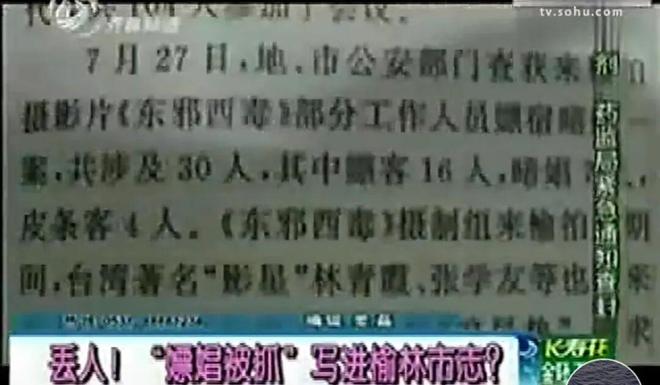 tv.sohu.com
7月27日,地、市公安部门查获来
摄影片《东邪西毒》部分工作人员嫖宿暗
案,共涉及30人,其中嫖客16人,暗娼
皮条客4人。《东邪西毒》摄制组来榆拍 期
间,台湾著名“影星”林青霞、张学友等也 来
剂 药监局紧急通知查封
编辑
丢人！“嫖娼被抓”写进榆林市志？
长寿花